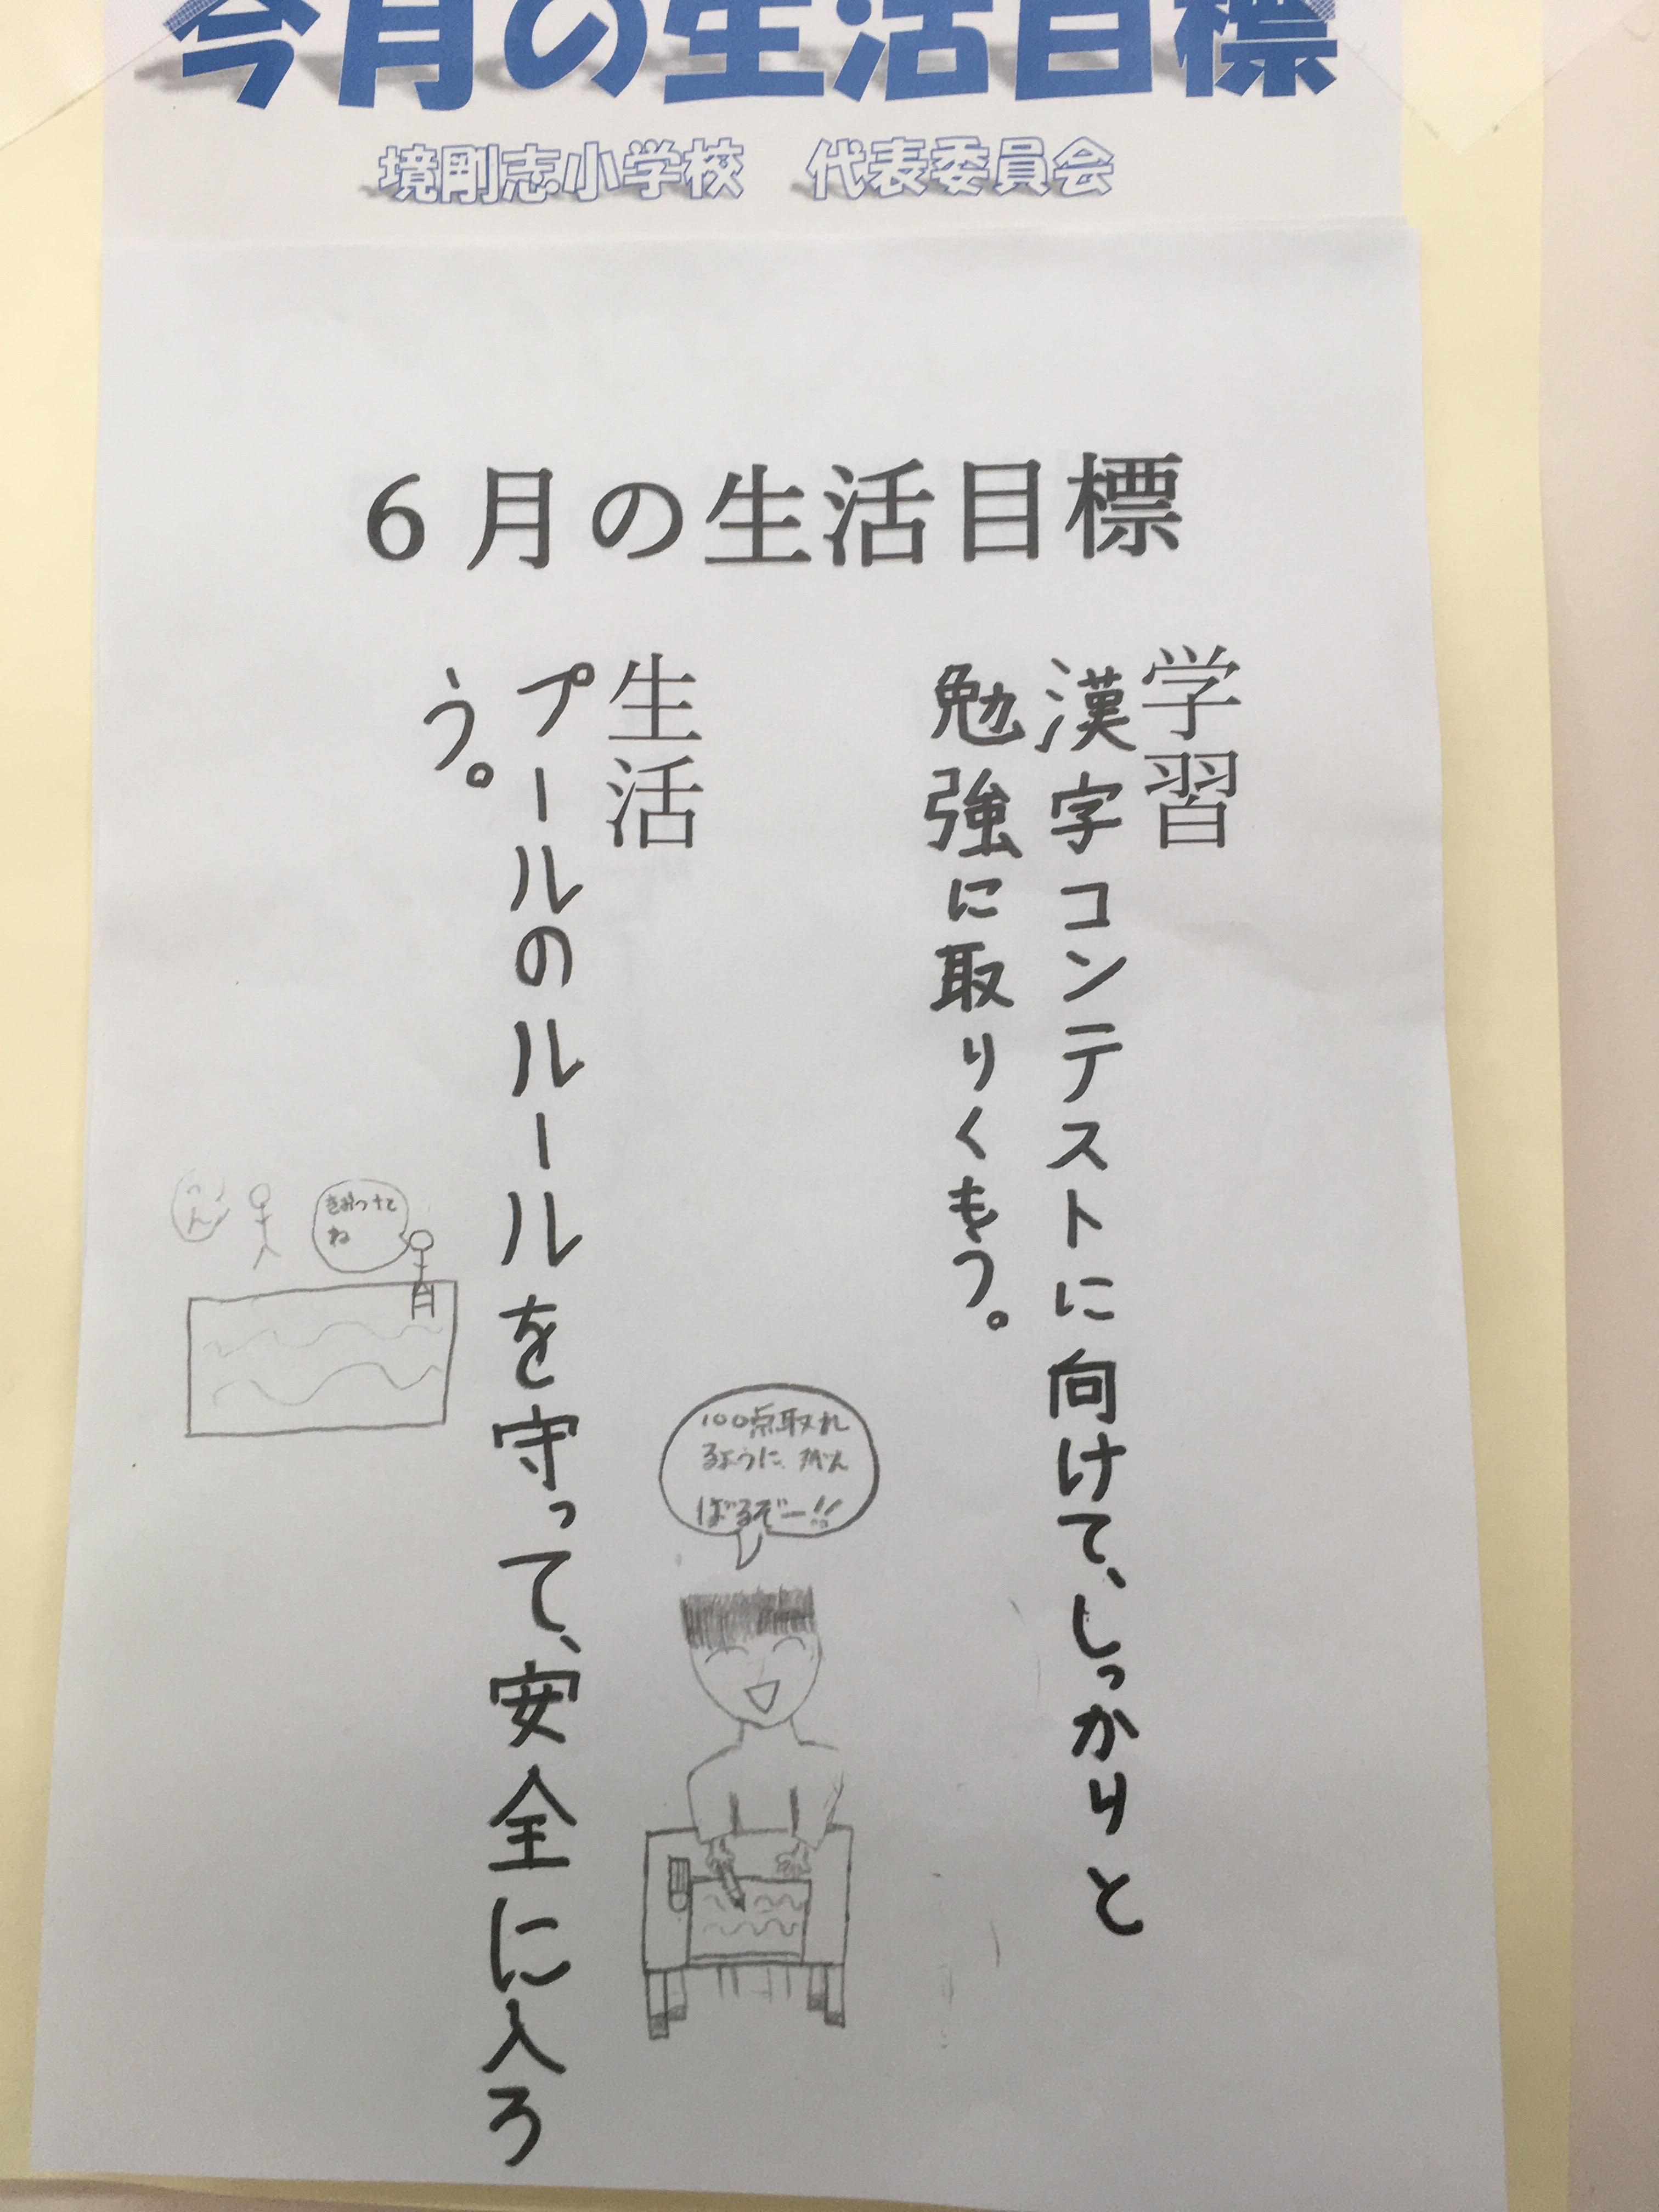 今月の生活目標
境剛志小学校　代表委員会
6月の生活目標
学習
漢字コンテストに向けて、しっかりと
勉強に取りくもう。
生活
プールのルールを守って、安全に入ろ
う。
100点取れ
るように、がん
ばるぞー!!
きおつけて
ね